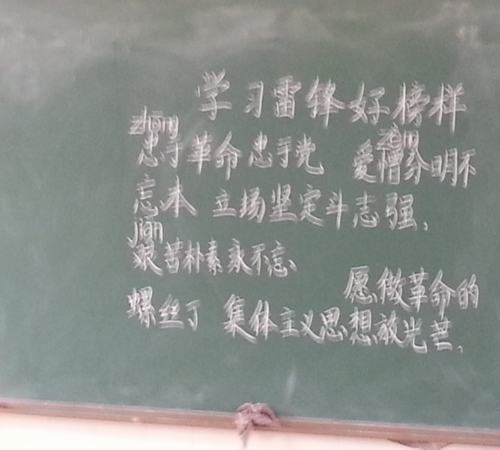 学习雷锋好榜样
zhōng
忠于革命忠于党 爱憎分明不
忘本 立场坚定斗志强,
jiān
艰苦朴素永不忘、
愿做革命的
螺丝丁 集体主义思想放光芒.